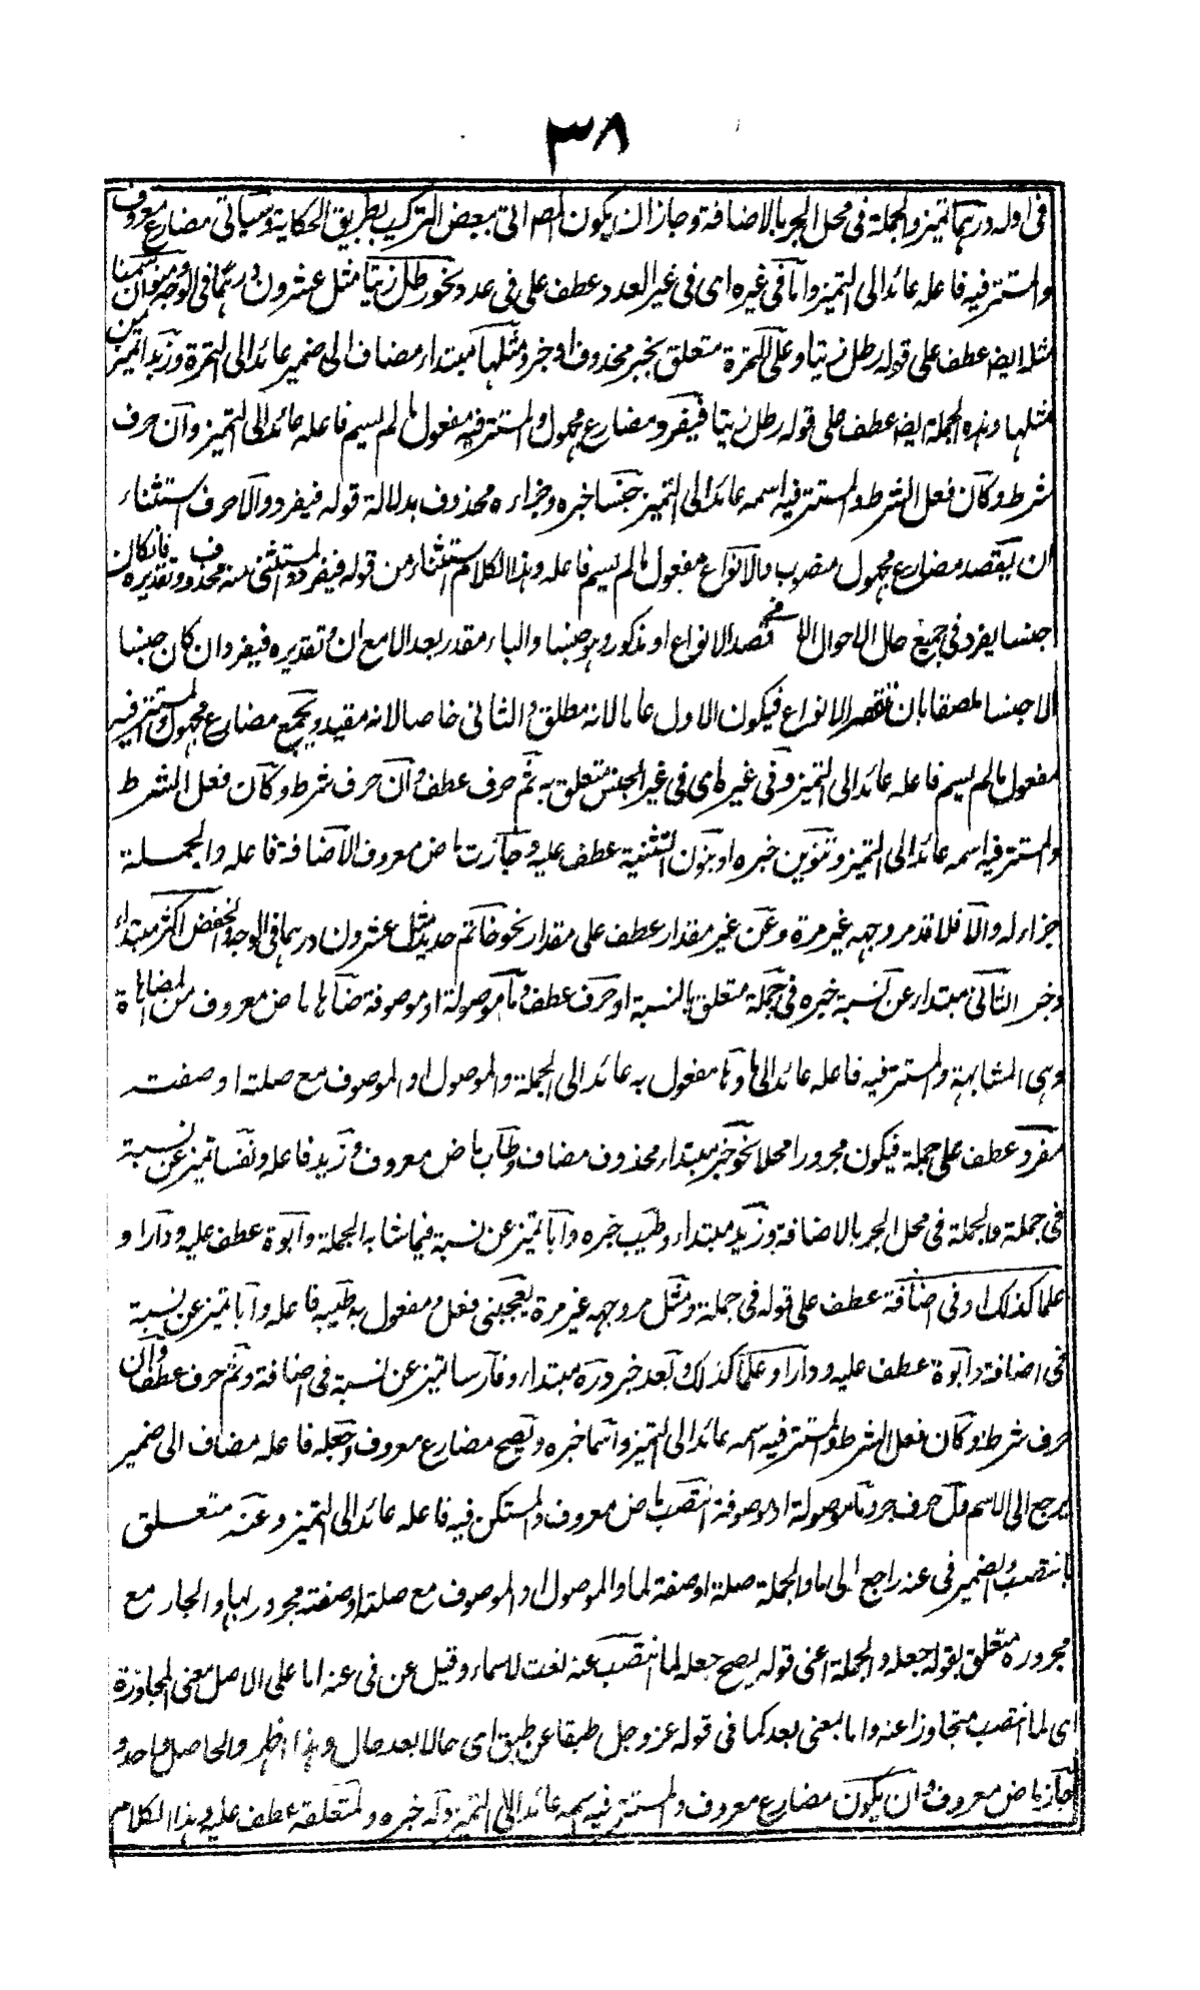 ٣٨
فى اوله درهما تميز والجملة فى محل الجر بالاضافة وجاز ان يكون المص اتى ببعض التركيب بطريق الحكاية وسياتى مضارع معروف
والمستتر فيه فاعله عائد الى التميز واما فى غيره اى فى غير العدد عطف على فى عدد نحو رطل زيتا مثل عشرون درهما فى الوجوه ومنوان سمنا
مثله ايضا عطف على قوله رطل زيتا وعلى التمرة متعلق بخبر محذوف او خبر ومثلها مبتداء مضاف الى ضمير عائد الى التمرة وزبدا تميز من
مثلها وهذه الجملة ايضا عطف على قوله رطل زيتا فيفرد مضارع مجهول والمستتر فيه مفعول مالم يسم فاعله عائد الى التميز وان حرف
شرط وكان فعل الشرط والمستتر فيه اسمه عائد الى التميز جنسا خبره وجزاءه محذوف بدلالة قوله فيفرد والا حرف استثناء
ان يقصد مضارع مجهول منصوب والانواع مفعول مالم يسم فاعله وهذا الكلام استثناء من قوله فيفرد والمستثنى منه محذوف وتقديره فان كان
جنسا يفرد فى جميع حال الاحوال الا فى قصد الانواع او مذكور وهو جنسا والباء مقدر بعد الا مع ان وتقديره فيفرد ان كان جنسا
الا جنسا ملصقا بان تقصد الانواع فيكون الاول عاما لانه مطلق والثانى خاصا لانه مقيد ويجمع مضارع مجهول والمستتر فيه
مفعول مالم يسم فاعله عائد الى التميز وفى غيره اى فى غير الجنس متعلق به ثم حرف عطف وان حرف شرط وكان فعل الشرط
والمستتر فيه اسمه عائد الى التميز وتنوين خبره او بنون التثنية عطف عليه وجازت ماض معروف الاضافة فاعله والجملة
جزاء له والا فلا قد مر وجهه غير مرة وعن غير مقدار عطف على مقدار نحو خاتم حديدا مثل عشرون درهما فى الوجوه والخفض اكثر مبتداء
وخبر الثانى مبتداء عن نسبة خبره فى جملة متعلق بالنسبة او حرف عطف وما موصولة او موصوفة ضاها ماض معروف من المضاهاة
وهى المشابهة والمستتر فيه فاعله عائد الى ما وها مفعول به عائد الى الجملة والموصول او الموصوف مع صلته او صفته
مفرد عطف على جملة فيكون مجرورا محلا نحو خبر مبتداء محذوف مضاف وطاب ماض معروف وزيد فاعله ونفسا تميز عن نسبة
فى جملة والجملة فى محل الجر بالاضافة وزيد مبتداء وطيب خبره وابا تميز عن نسبة فيما شابه الجملة وابوة عطف عليه ودارا و
علما كذلك او فى اضافة عطف على قوله فى جملة ومثل مر وجهه غير مرة يعجبنى فعل ومفعول به طيبه فاعله وابا تميز عن نسبة
فى اضافة وابوة عطف عليه ودارا وعلما كذلك وبعد خبر دره مبتداء وفارسا تميز عن نسبة فى اضافة وثم حرف عطف وان
حرف شرط وكان فعل الشرط والمستتر فيه اسمه عائد الى التميز واسما خبره ويصح مضارع معروف وجعله فاعله مضاف الى ضمير
يرجع الى الاسم ول حرف جر وما موصولة او موصوفة انتصب ماض معروف والمستكن فيه فاعله عائد الى التميز وعنه متعلق
بانتصب والضمير فى عنه راجع الى ما والجملة صلة او صفة لما والموصول او الموصوف مع صلته او صفته مجرور لها والجار مع
مجروره متعلق بقوله جعله والجملة اعنى قوله يصح جعله لما انتصب عنه نعت لاسماء وقيل عن فى عنه اما على الاصل معنى المجاوزة
اى لما انتصب متجاوزا عنه واما بمعنى بعد كما فى قوله عز وجل طبقا عن طبق اى حالا بعد حال وهذا اظهر والحاصل واحد و
جاز ماض معروف وان يكون مضارع معروف والمستتر فيه اسمه عائد الى التميز وله خبره ولمتعلقه عطف عليه وهذا الكلام